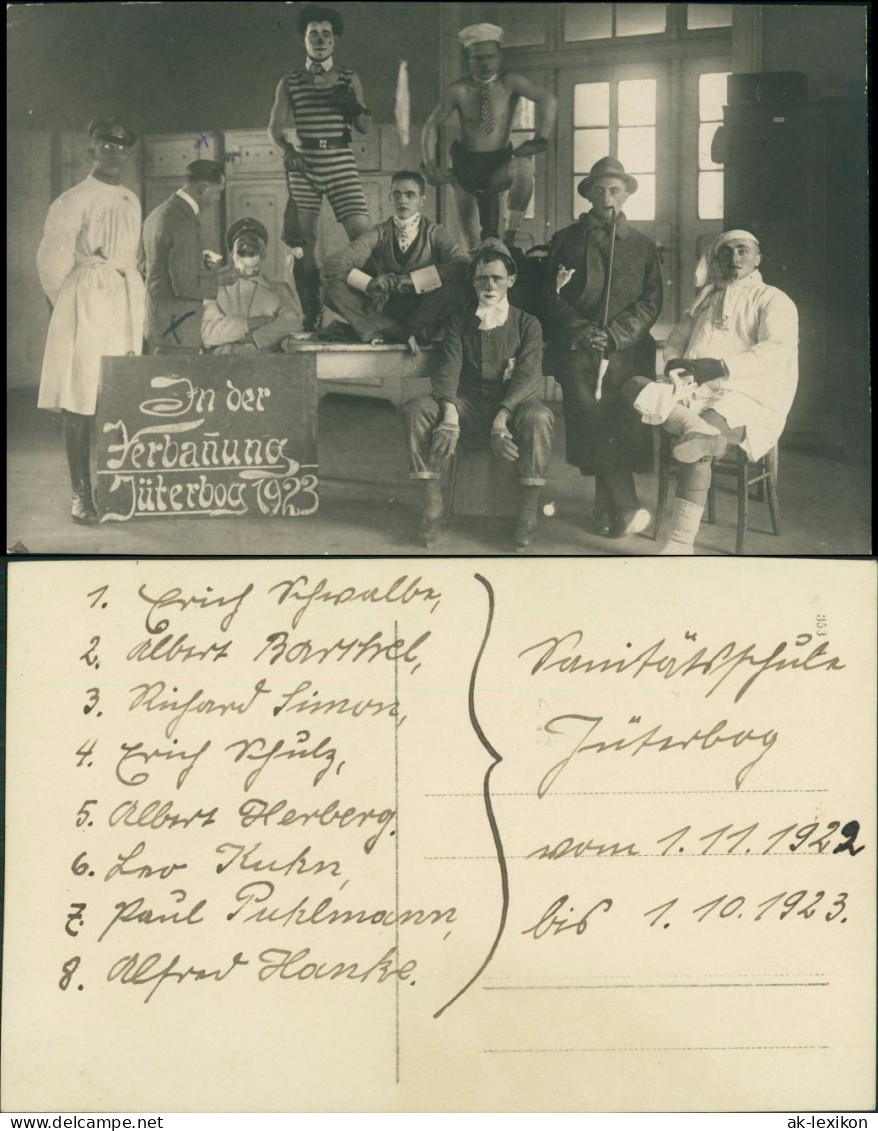 In der
Verbañung
Jüterbog 1923
1. Erich Schwalbe,
2. Albert Barthel,
3. Richard Simon,
4. Erich Schulz,
5. Albert Herberg.
6. Leo Kuhn,
7. Paul Puhlmann,
8. Alfred Hanke.
Sanitätsschule
Jüterbog
vom 1.11.1922
bis 1.10.1923.
353
ak-lexikon